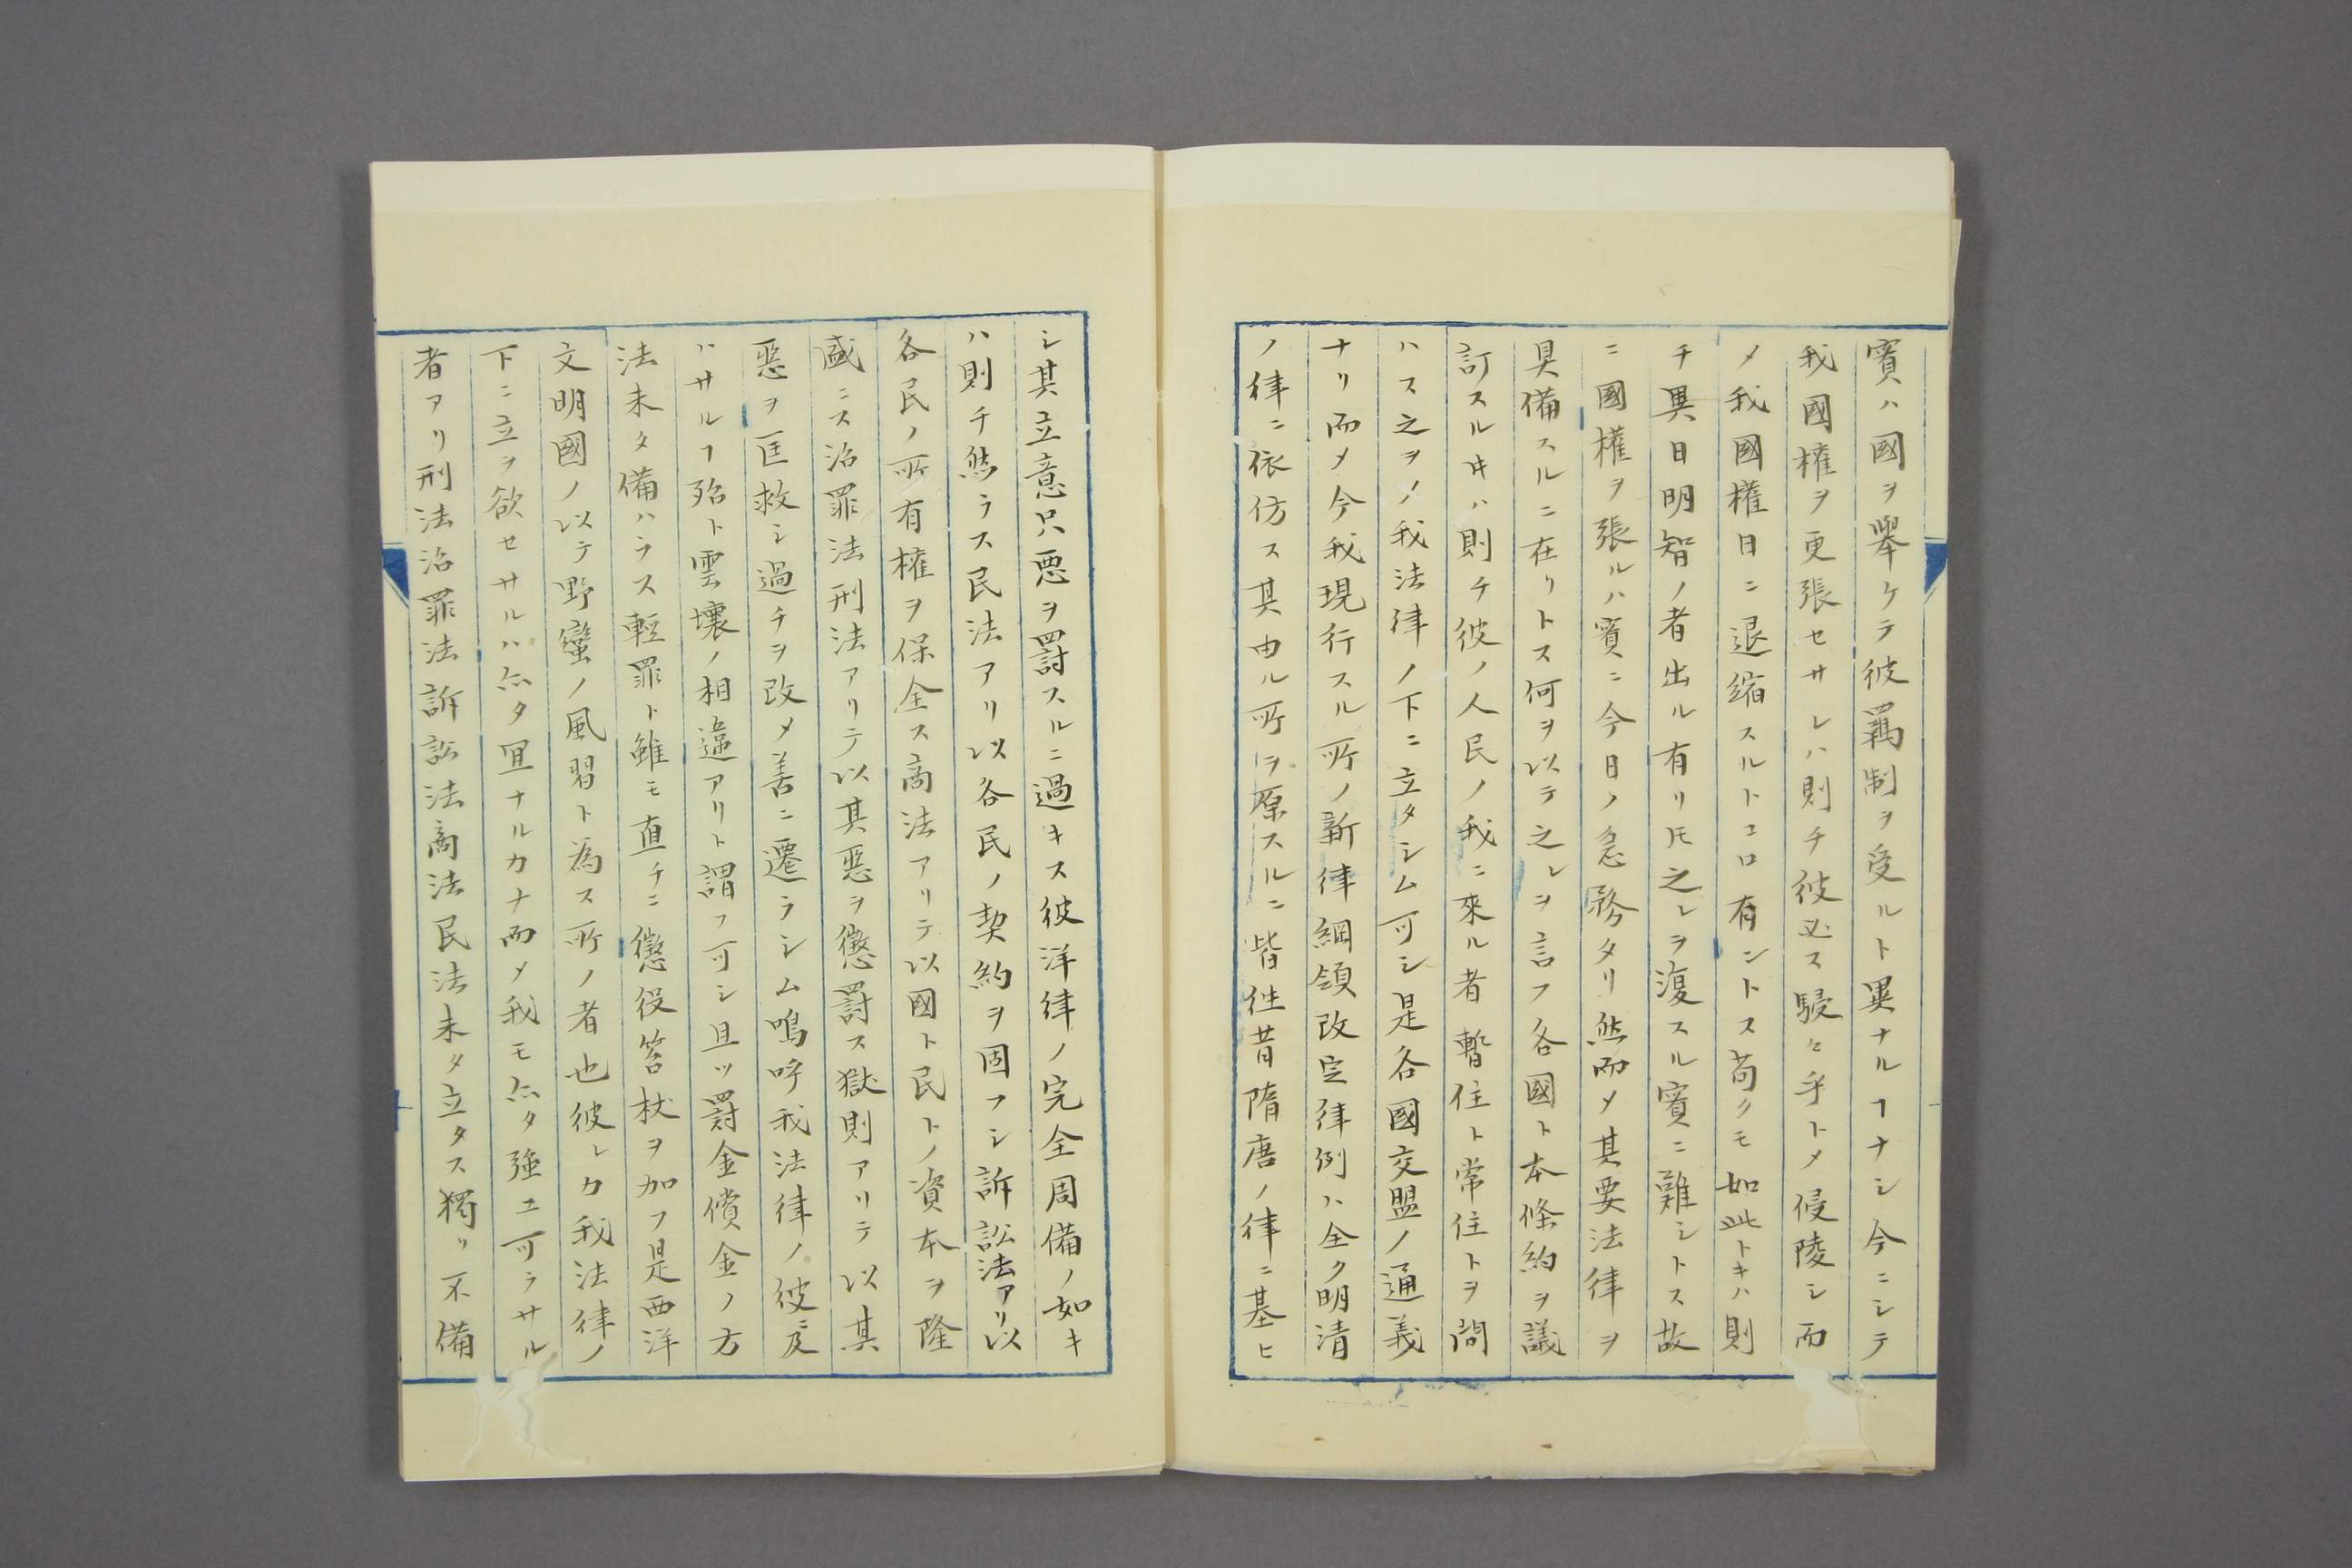 實ハ國ヲ擧ケテ彼羈制ヲ受ルト異ナルヿナシ今ニシテ
我國權ヲ更張セサレハ則チ彼必ス駸々乎トメ侵陵シ而
メ我國權日ニ退縮スルトコロ有ントス苟クモ如此トキハ則
チ異日明智ノ者出ル有リ𪜈之レヲ復スル實ニ難シトス故
ニ國權ヲ張ルハ實ニ今日ノ急務タリ然而メ其要法律ヲ
具備スルニ在リトス何ヲ以テ之レヲ言フ各國ト本條約ヲ議
訂スルヰハ則チ彼ノ人民ノ我ニ來ル者暫住ト常住トヲ問
ハス之ヲノ我法律ノ下ニ立タシム可シ是各國交盟ノ通義
ナリ而メ今我現行スル所ノ新律綱領改定律例ハ全ク明清
ノ律ニ依仿ス其由ル所ヲ原スルニ皆徃昔隋唐ノ律ニ基ヒ
シ其立意只悪ヲ罸スルニ過キス彼洋律ノ完全周備ノ如キ
ハ則チ然ラス民法アリ以各民ノ契約ヲ固フシ訴訟法アリ以
各民ノ所有權ヲ保全ス商法アリテ以國ト民トノ資本ヲ隆
盛ニス治罪法刑法アリテ以其惡ヲ懲罸ス獄則アリテ以其
惡ヲ匡救シ過チヲ改メ善ニ遷ラシム嗚呼我法律ノ彼ニ及
ハサルヿ殆ト雲壤ノ相違アリト謂フ可シ且ツ罸金償金ノ方
法未タ備ハラス輕罪ト雖モ直チニ懲役笞杖ヲ加フ是西洋
文明國ノ以テ野蠻ノ風習ト為ス所ノ者也彼レカ我法律ノ
下ニ立ヲ欲セサルハ亦タ宜ナルカナ而メ我モ亦タ強ユ可ラサル
者アリ刑法治罪法訴訟法商法民法未タ立タス獨リ不備